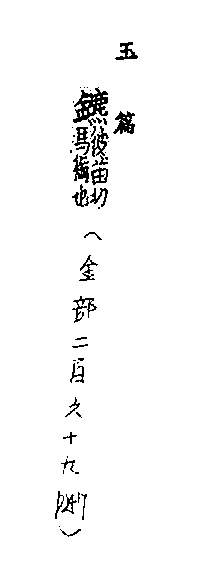 玉篇
鑣彼苗切
馬銜也
（金部二百六十九附）